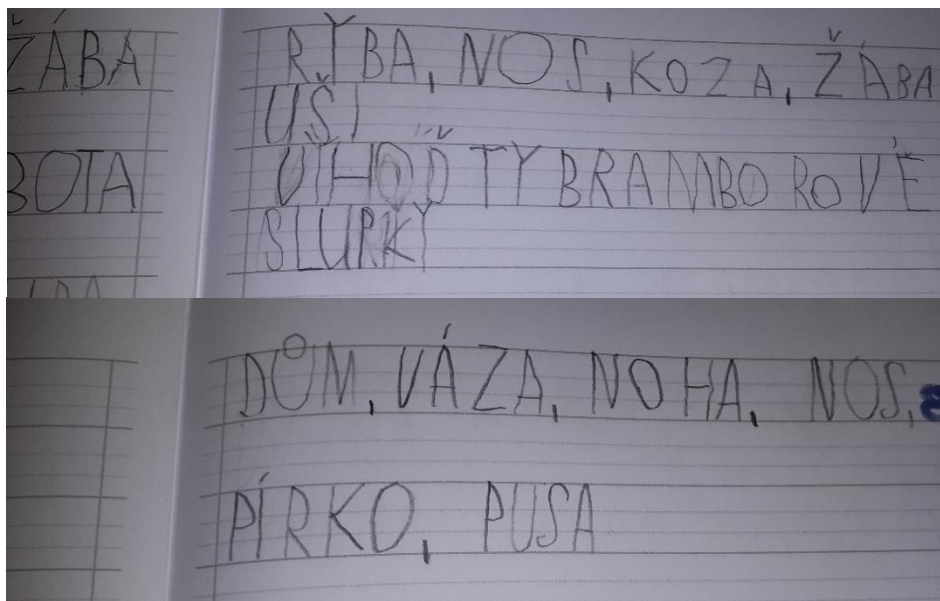 ŽÁBA
BOTA
RYBA, NOS, KOZA, ŽÁBA
UŠI
VIHOĎ TY BRAMBOROVÉ
SLUPKY
DŮM, VÁZA, NOHA, NOS,
PÍRKO, PUSA